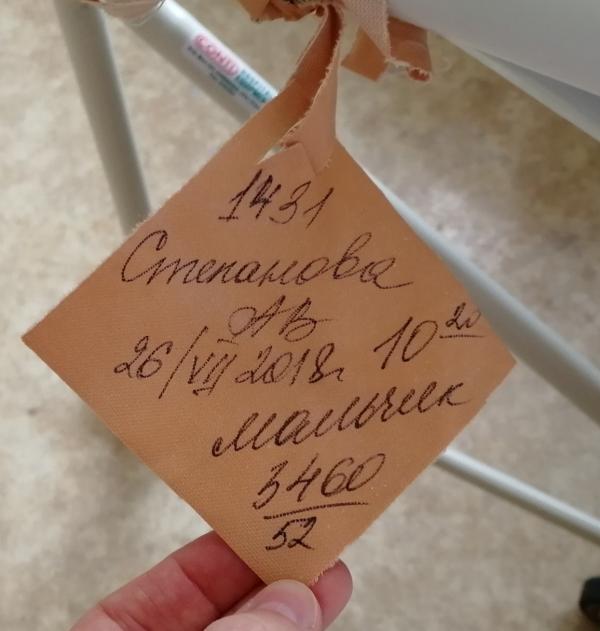 1431
Степанова
АВ
26/VII 2018г 10 20
мальчик
3460
52